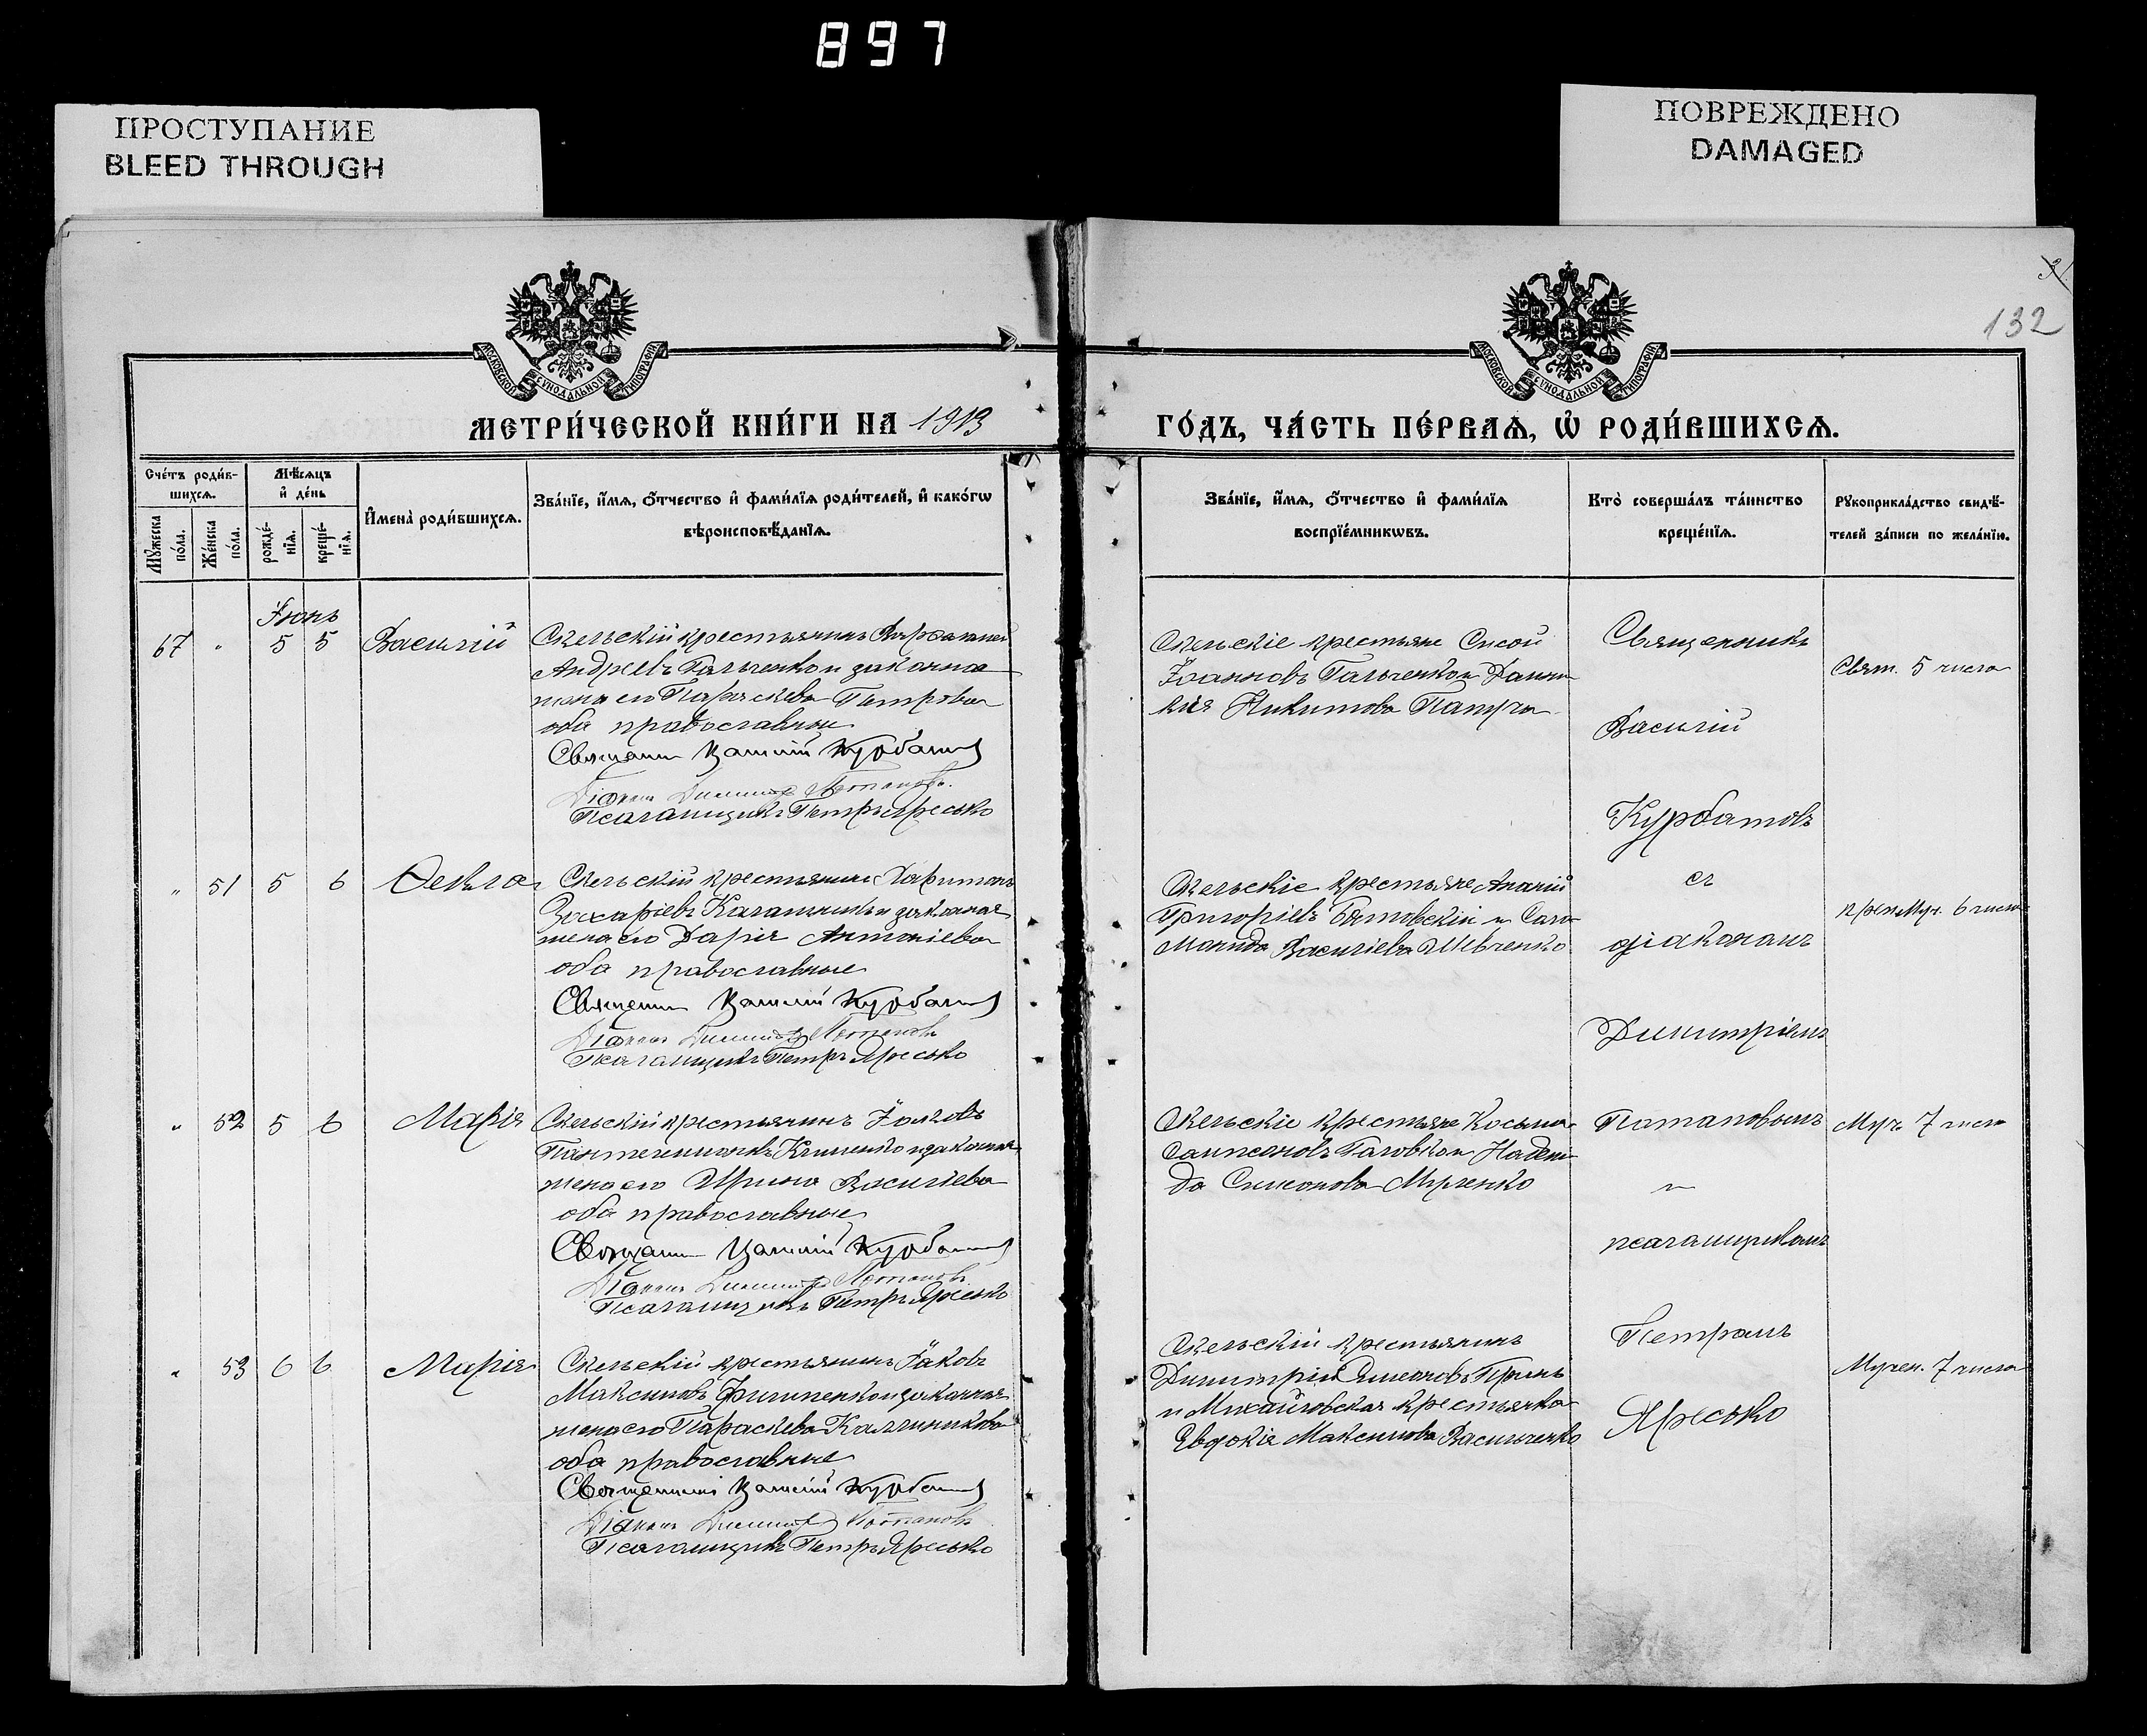 897
ПРОСТУПАНИЕ
BLEED THROUGH
ПОВРЕЖДЕНО
DAMAGED
132
МОСКОВСКОЙ СѴНОДАЛЬНОЙ ТИПОГРАФІИ
МОСКОВСКОЙ СѴНОДАЛЬНОЙ ТИПОГРАФІИ
МЕТРИ́ЧЕСКОЙ КНИ́ГИ НА 1913
ГО́ДЪ, ЧА́СТЬ ПЕ́РВАѦ, Ѡ҆ РОДИ́ВШИХСѦ.
Сче́тъ роди́в-
шихсѧ.
Мꙋ́жеска по́ла.
Же́нска по́ла.
Мѣ́сѧцъ
и҆ де́нь
рожде́-
нїѧ.
креще́-
нїѧ.
И҆мена̀ роди́вшихсѧ.
Зва́нїе, и҆́мѧ, ѻ҆́тчество и҆ фами́лїѧ роди́телей, и҆ како́гѡ
вѣроисповѣ́данїѧ.
Зва́нїе, и҆́мѧ, ѻ҆́тчество и҆ фами́лїѧ
воспрїе́мникѡвъ.
Кто̀ соверша́лъ та́инство
креще́нїѧ.
Рꙋкоприкла́дство свидѣ́-
телей за́писи по жела́нїю.
Іюнь
67 " 5 5 Василій
Скельскій крестьянинъ Варфоломей
Андреевъ Гальченко и законная
жена его Параскева Петрова
оба православные
Священникъ Василій Курбатовъ
Діаконъ Димитрій Потаповъ
Псаломщикъ Петръ Яресько
Скельскіе крестьяне Сисой
Іоанновъ Гальченко и
Никитова
Священникъ
Василій
Курбатовъ
Свят. 5 числа
" 51 5 6 Ѳекла
Скельскій крестьянинъ Харитонъ
Захаріевъ и законная
жена его Дарія Антоніева
оба православные
Священникъ Василій Курбатовъ
Діаконъ Димитрій Потаповъ
Псаломщикъ Петръ Яресько
Скельскіе крестьяне Ананій
Григоріевъ и Соло
монида Василіева Шевченко
съ
діакономъ
Димитріемъ
преп. Муч. 6 числа
" 52 5 6 Марія
Скельскій крестьянинъ Іаковъ
Пантелеимоновъ Клименко и законная
жена его Ирина Василіева
оба православные
Священникъ Василій Курбатовъ
Діаконъ Димитрій Потаповъ
Псаломщикъ Петръ Яресько
Скельскіе крестьяне Косьма
Сампсоновъ и Надеж
да Симеонова
Потаповымъ
и
псаломщикомъ
Муч. 7 числа
" 53 6 6 Марія
Скельскій крестьянинъ Іаковъ
Максимовъ Филипенко и законная
жена его Параскева Каллиникова
оба православные
Священникъ Василій Курбатовъ
Діаконъ Димитрій Потаповъ
Псаломщикъ Петръ Яресько
Скельскій крестьянинъ
Димитрій Симеоновъ
и Михайловская крестьянка
Евдокія Максимова Васильченко
Петромъ
Яресько
Мучен. 7 числа